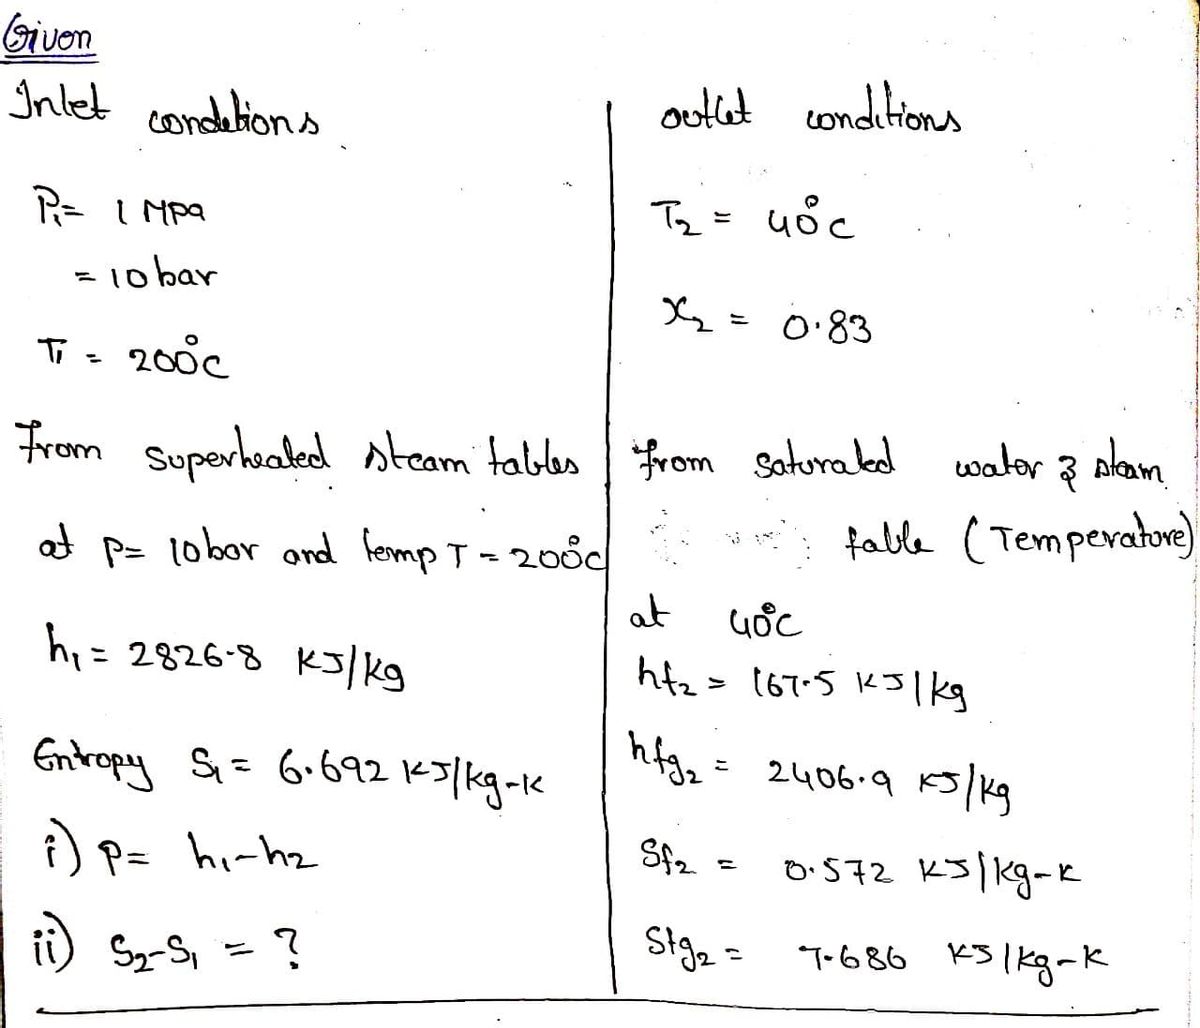 Given
Inlet conditions
P₁= 1 MPa
= 10 bar
T₁ = 200°C
From superheated steam tables
at P= 10 bar and temp T = 200°C
h₁ = 2826.8 KJ/kg
Entropy S₁ = 6.692 KJ/kg-K
i) P= h₁-h₂
ii) S₂-S₁ = ?
outlet conditions
T₂ = 40°C
x₂ = 0.83
from saturated water & steam
table (Temperature)
at 40°C
hf₂ = 167.5 KJ/kg
hfg₂ = 2406.9 KJ/kg
Sf₂ = 0.572 KJ/kg-K
Sfg₂ = 7.686 KJ/kg-K